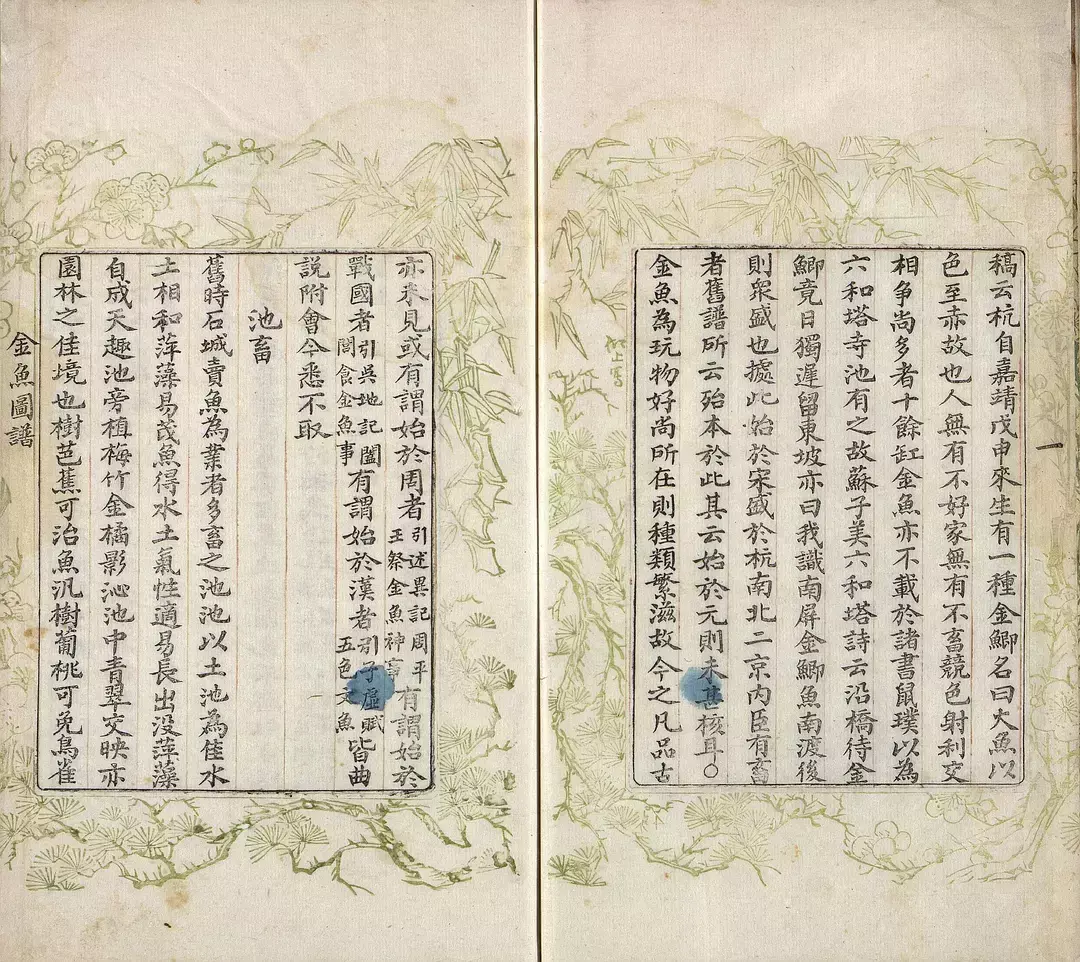 一
稿云杭自嘉靖戊申來生有一種金鯽名曰火魚以
色至赤故也人無有不好家無有不畜競色射利交
相爭尚多者十餘缸金魚亦不載於諸書鼠璞以為
六和塔寺池有之故蘇子美六和塔詩云沿橋待金
鯽竟日獨遲留東坡亦曰我識南屏金鯽魚南渡後
則衆盛也據此始於宋盛於杭南北二京內臣有畜
者舊譜所云殆本於此其云始於元則未甚核耳○
金魚為玩物好尚所在則種類繁滋故今之凡品古
亦未見或有謂始於周者引述異記周平王祭金魚神事有謂始於
戰國者引吳地記闔閭食金魚事有謂始於漢者引子虛賦五色文魚皆曲
說附會今悉不取
池畜
舊時石城賣魚為業者多畜之池池以土池為佳水
土相和萍藻易茂魚得水土氣性適易長出没萍藻
自成天趣池旁植梅竹金橘影沁池中青翠交映亦
園林之佳境也樹芭蕉可治魚汎樹葡桃可免鳥雀
金魚圖譜